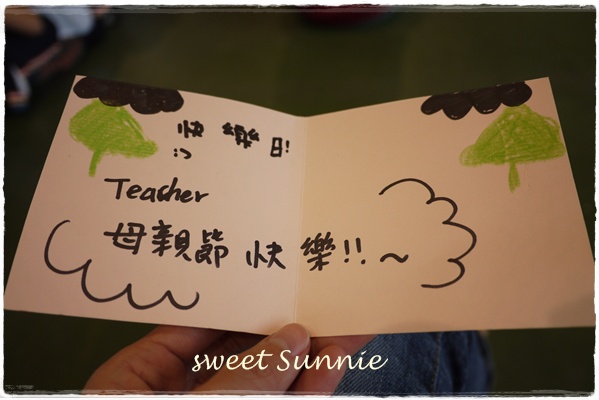 快樂日!
:)
Teacher
母親節快樂!!~
sweet Sunnie